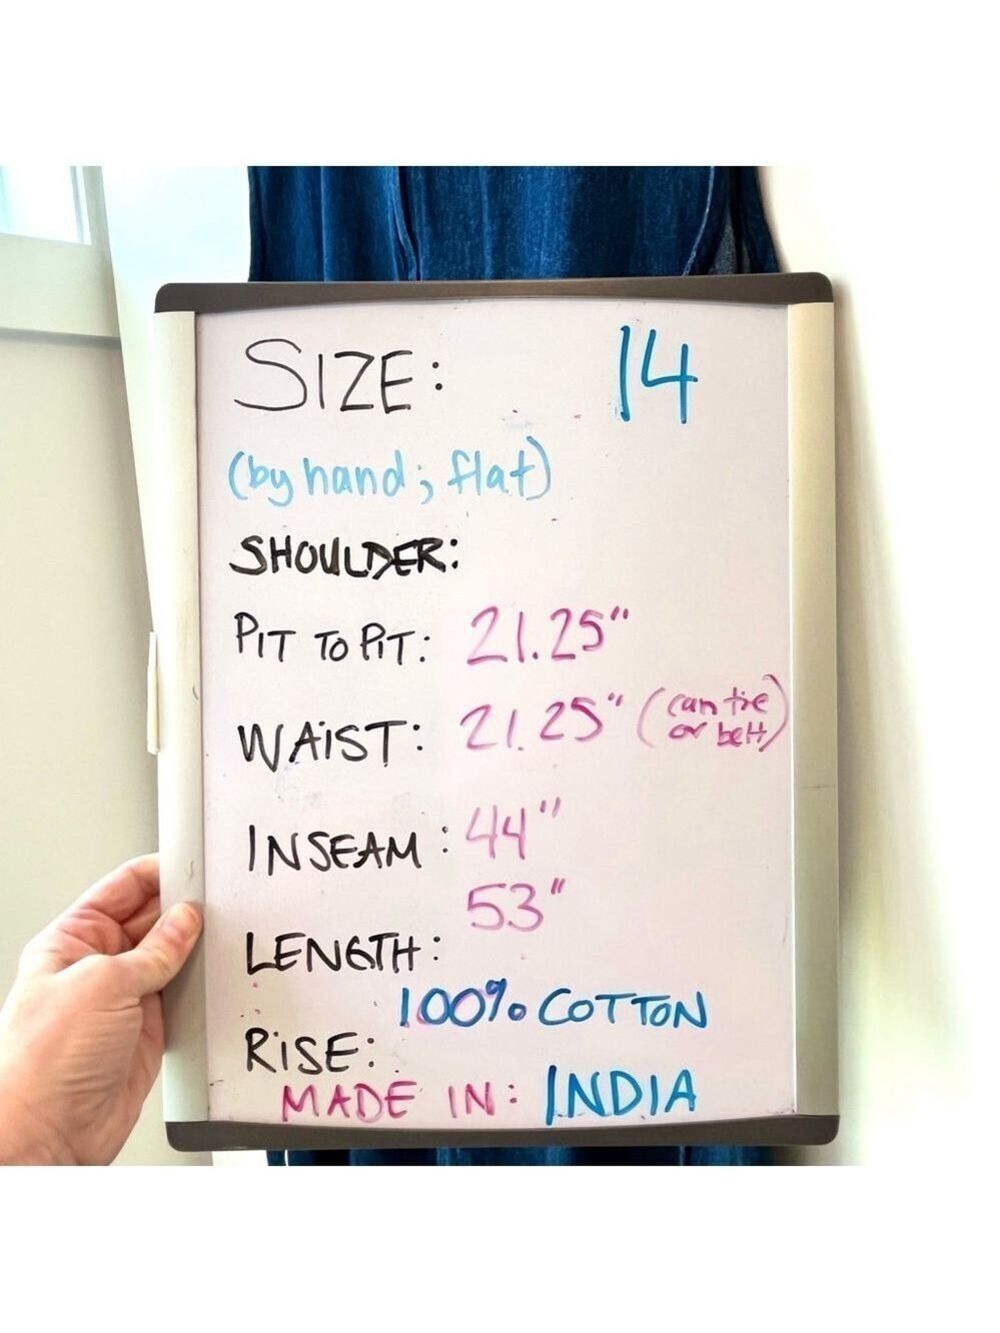 SIZE: 14
(by hand; flat)
SHOULDER:
PIT TO PIT: 21.25"
WAIST: 21.25" (can tie or belt)
INSEAM: 44"
53"
LENGTH:
100% COTTON
RISE:
MADE IN: INDIA